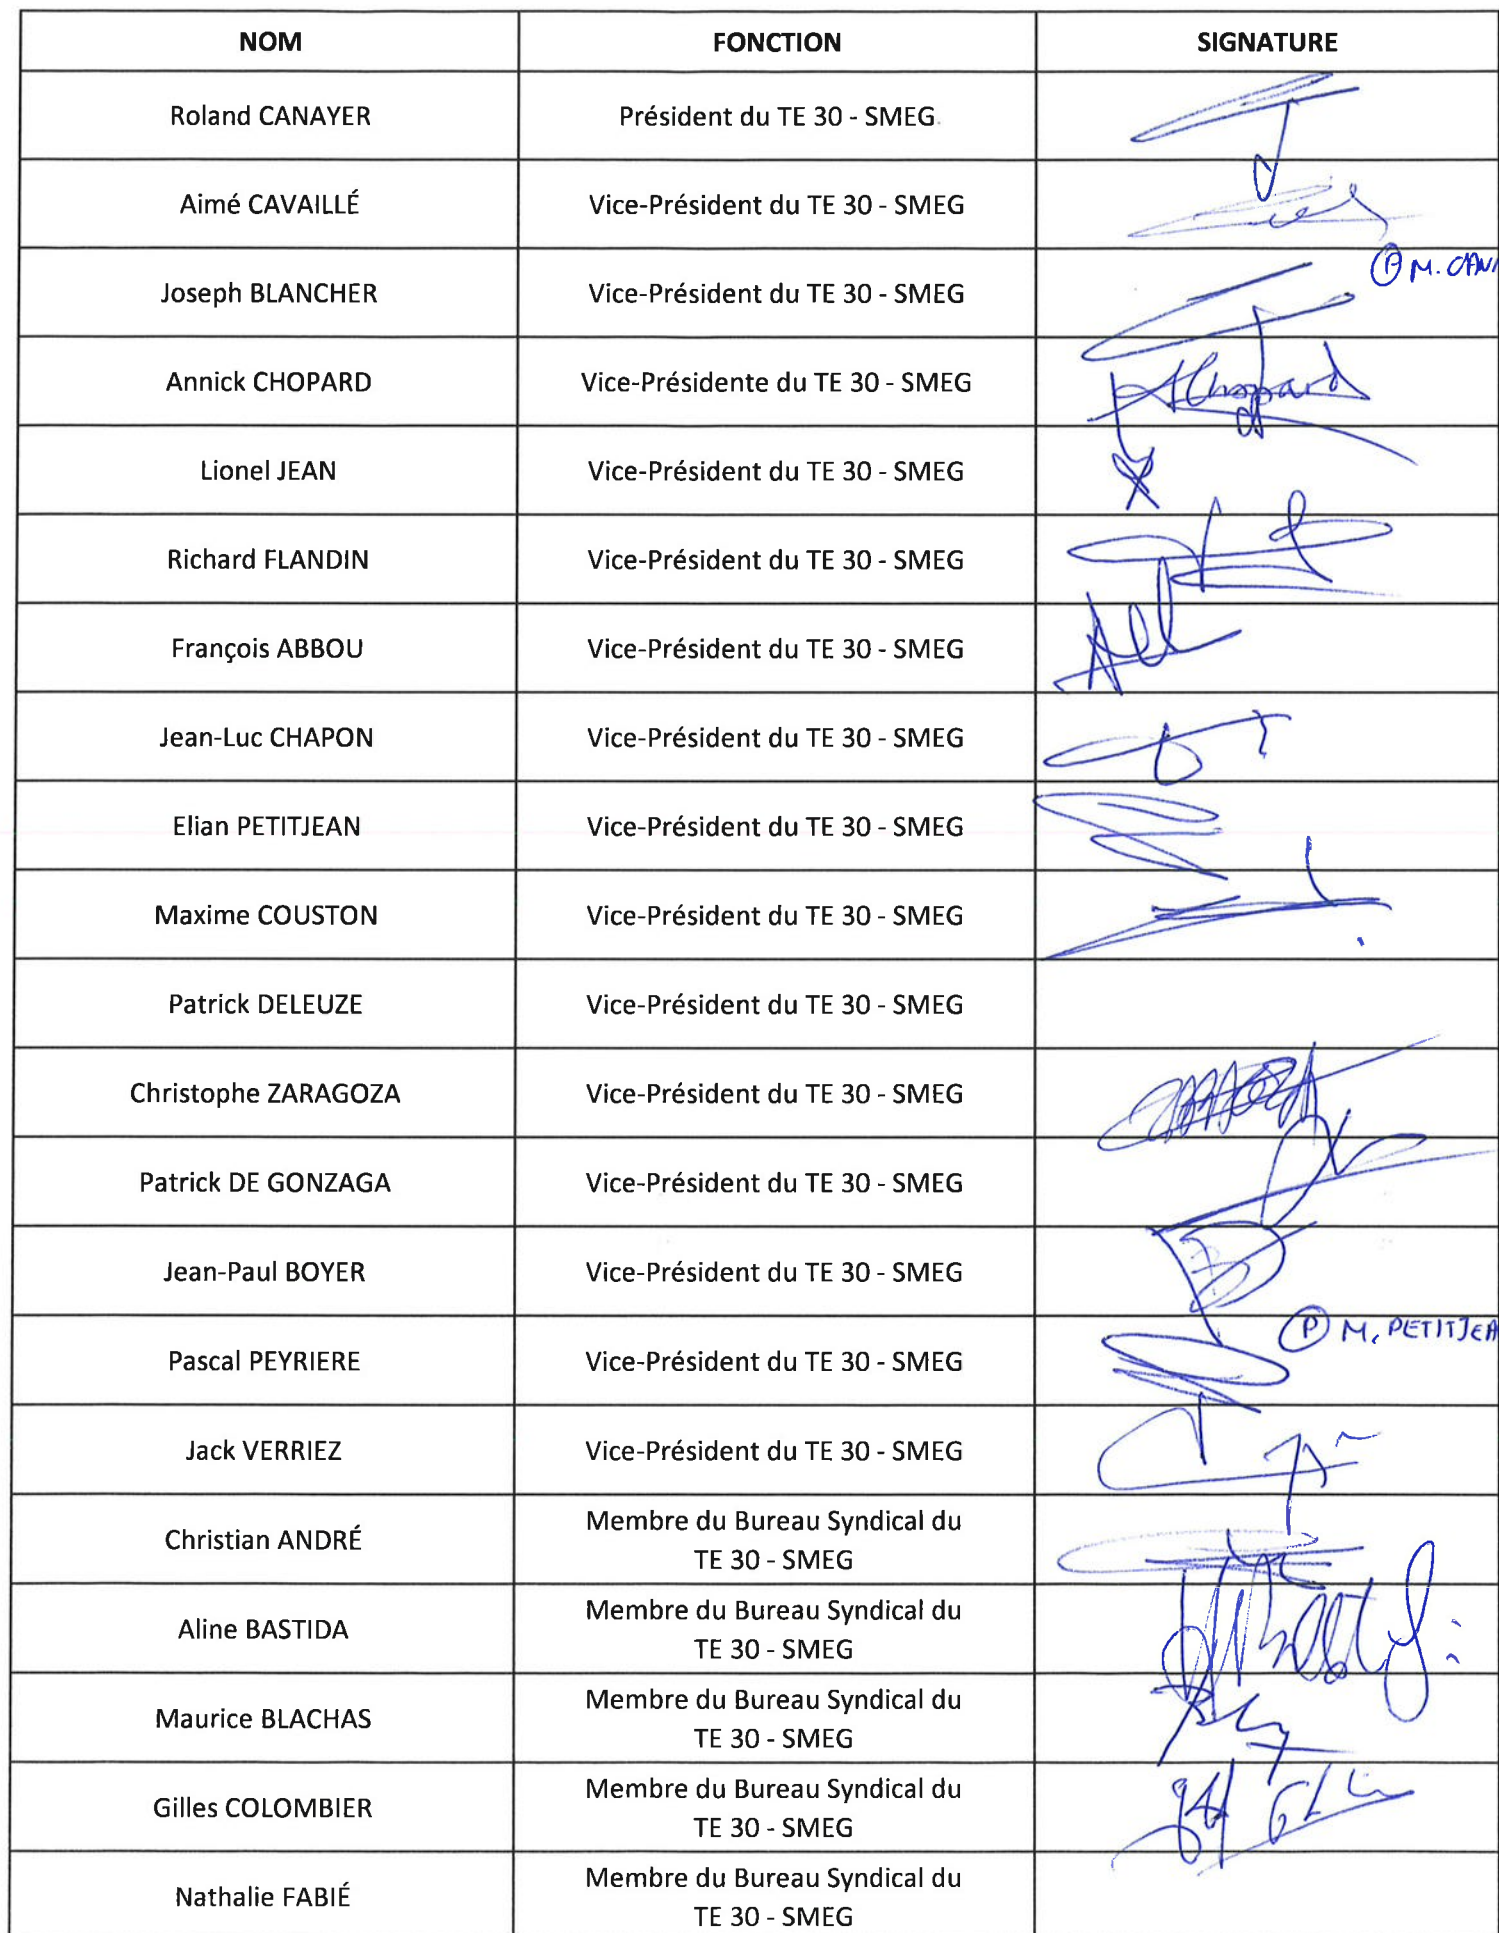 NOM FONCTION SIGNATURE
Roland CANAYER Président du TE 30 - SMEG
Aimé CAVAILLÉ Vice-Président du TE 30 - SMEG
P M. CANA
Joseph BLANCHER Vice-Président du TE 30 - SMEG
Annick CHOPARD Vice-Présidente du TE 30 - SMEG AChopard
Lionel JEAN Vice-Président du TE 30 - SMEG
Richard FLANDIN Vice-Président du TE 30 - SMEG
François ABBOU Vice-Président du TE 30 - SMEG
Jean-Luc CHAPON Vice-Président du TE 30 - SMEG
Elian PETITJEAN Vice-Président du TE 30 - SMEG
Maxime COUSTON Vice-Président du TE 30 - SMEG
Patrick DELEUZE Vice-Président du TE 30 - SMEG
Christophe ZARAGOZA Vice-Président du TE 30 - SMEG
Patrick DE GONZAGA Vice-Président du TE 30 - SMEG
Jean-Paul BOYER Vice-Président du TE 30 - SMEG
P M. PETITJEA
Pascal PEYRIERE Vice-Président du TE 30 - SMEG
Jack VERRIEZ Vice-Président du TE 30 - SMEG
Christian ANDRÉ Membre du Bureau Syndical du
TE 30 - SMEG
Aline BASTIDA Membre du Bureau Syndical du
TE 30 - SMEG
Maurice BLACHAS Membre du Bureau Syndical du
TE 30 - SMEG
Gilles COLOMBIER Membre du Bureau Syndical du
TE 30 - SMEG
Nathalie FABIÉ Membre du Bureau Syndical du
TE 30 - SMEG